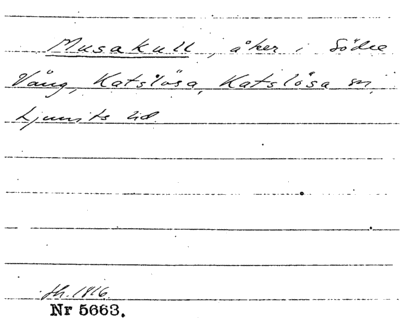 Musakull, åker i Södra
Vång, Katslösa, Katslösa sn,
Ljunits hd.
fh. 1916
Nr 5663.